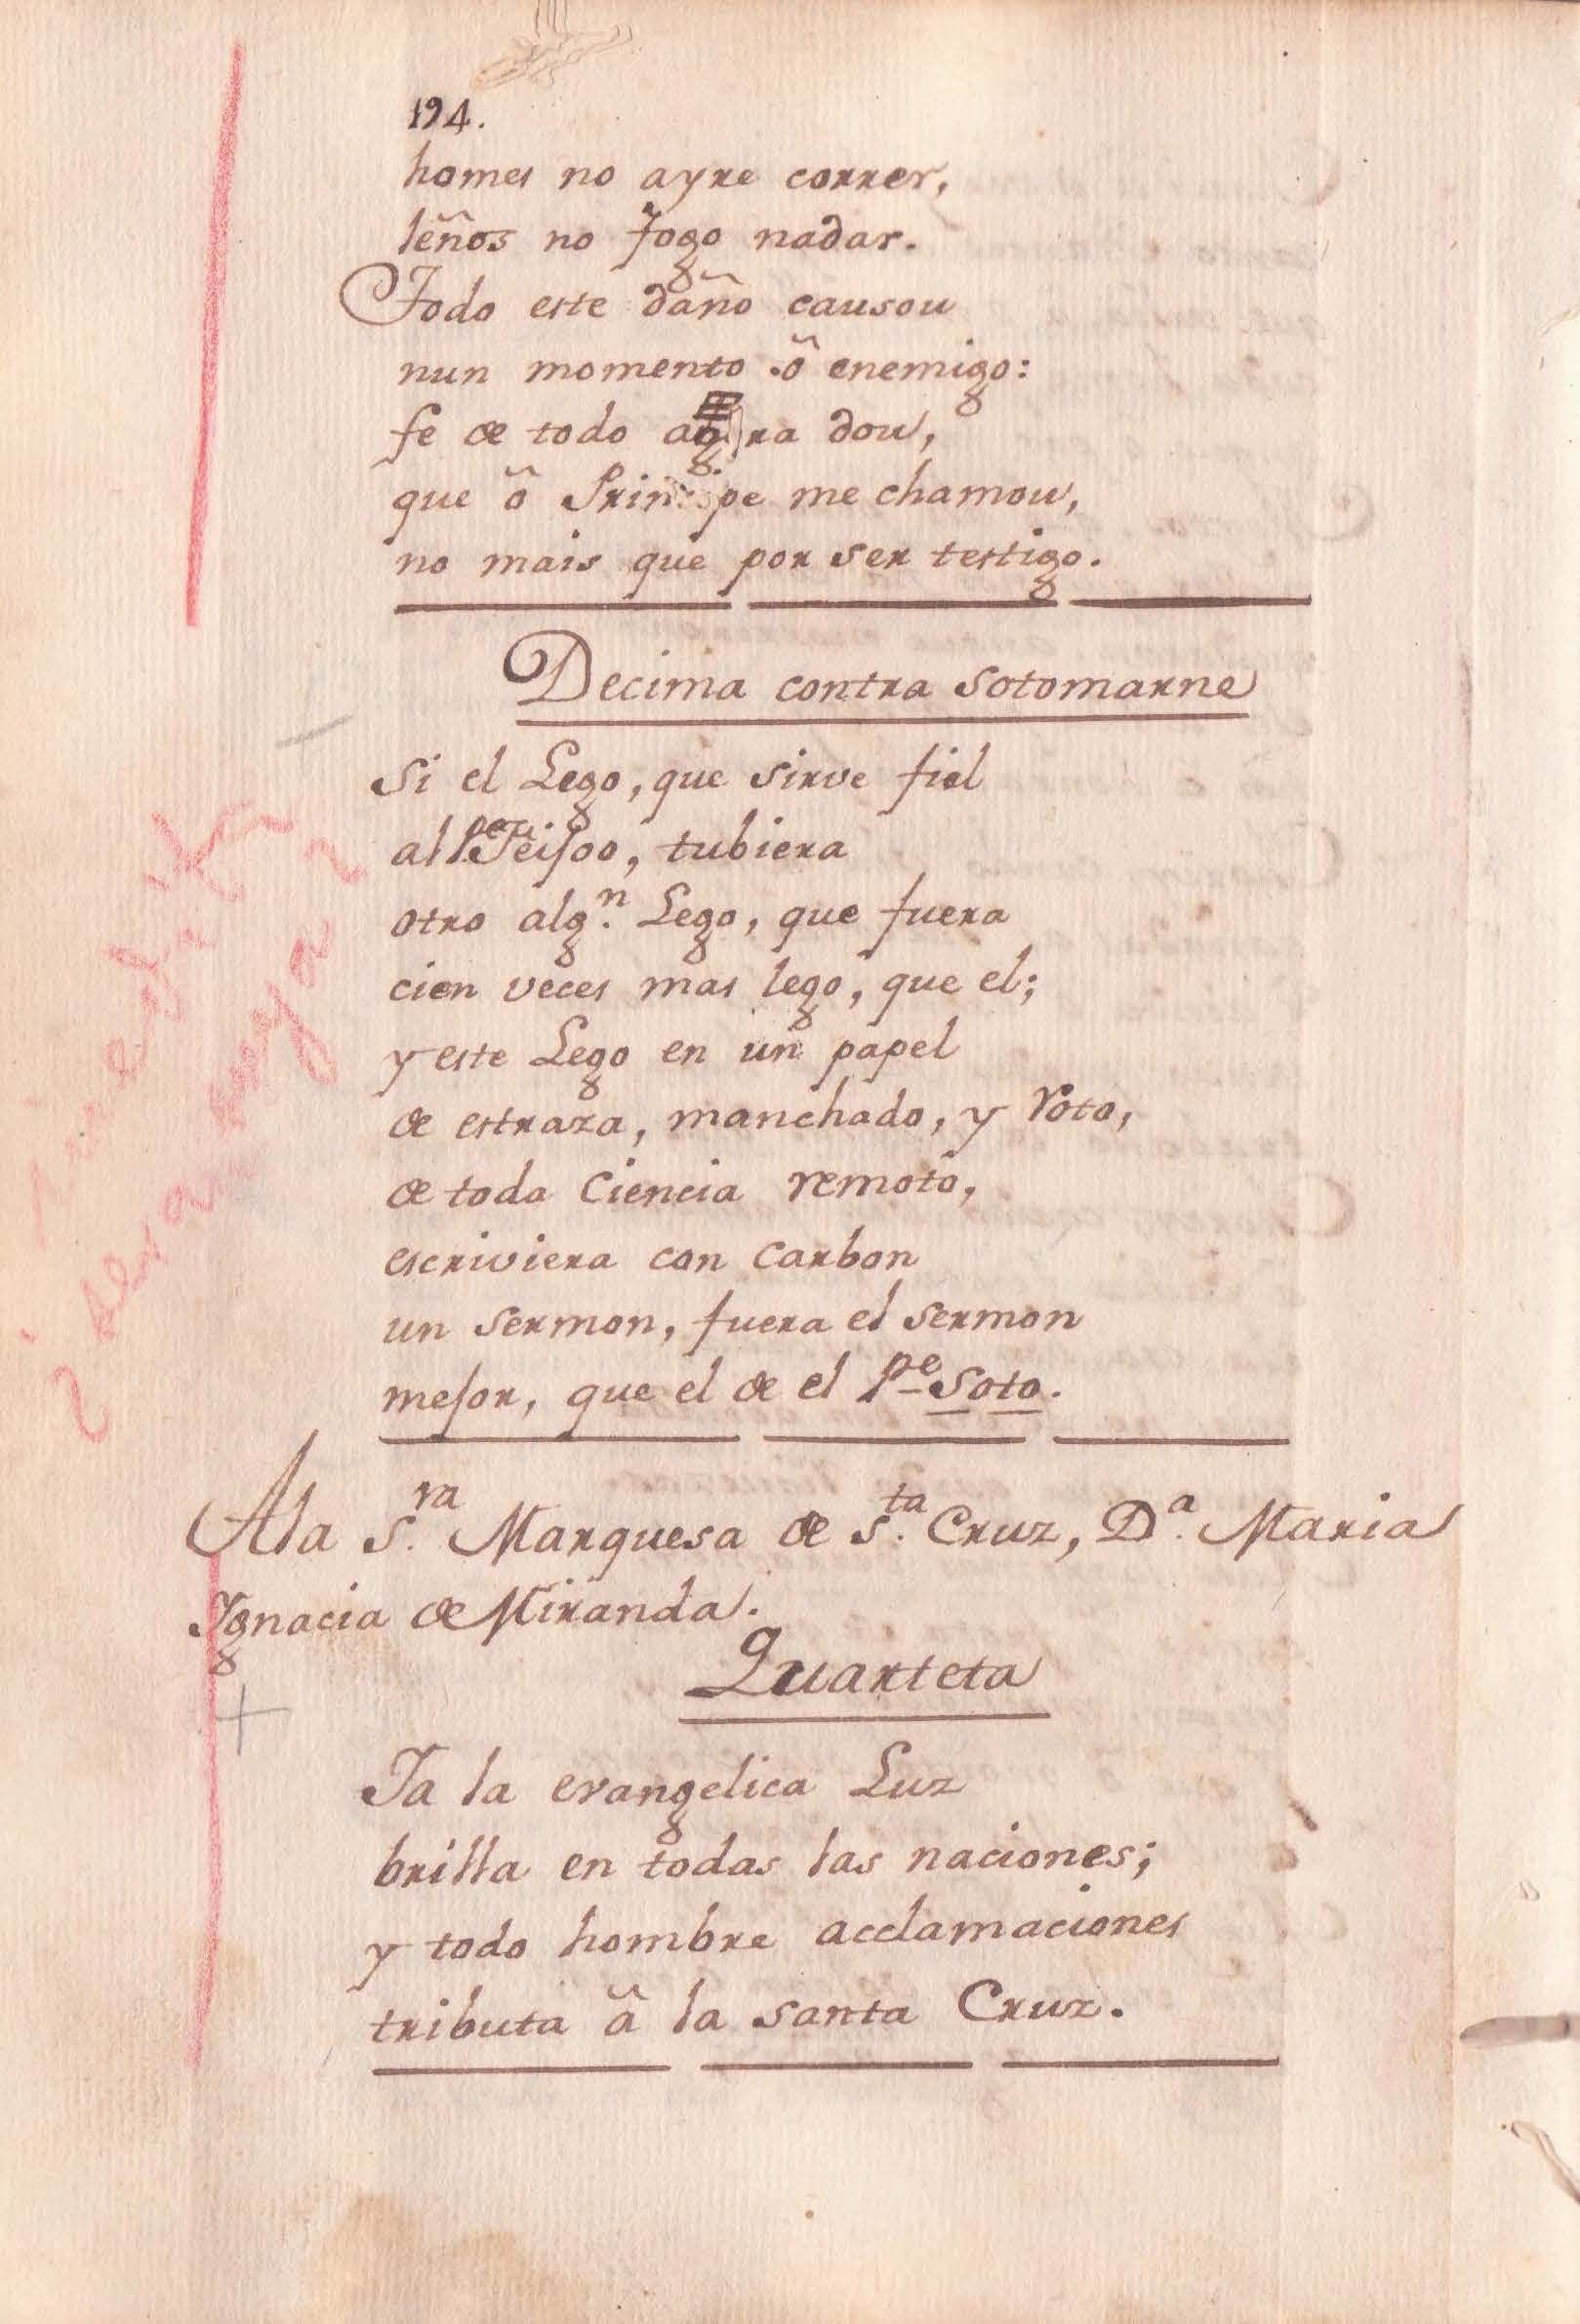 194.
homes no ayre correr,
leños no fogo nadar.
Todo este daño causou
nun momento .ô enemigo:
fe de todo agora dou,
que ô Principe me chamou,
no mais que por ser testigo.
Decima contra Sotomarne
Si el Lego, que sirve fiel
al Pe. Feijoo, tubiera
otro alg.n Lego, que fuera
cien veces mas lego, que el;
y este Lego en un papel
de estraza, manchado, y roto,
de toda Ciencia remoto,
escriviera con Carbon
un sermon, fuera el sermon
mejor, que el de el Pe. Soto.
A la S.ra Marquesa de S.ta Cruz, D.a Maria
Ignacia de Miranda.
Quarteta
Ya la evangelica Luz
brilla en todas las naciones;
y todo hombre acclamaciones
tributa â la santa Cruz.